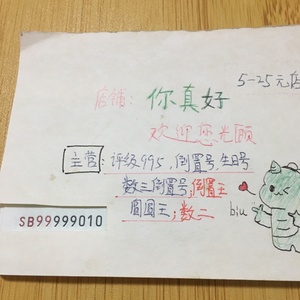 5-25元店
店铺：你真好
欢迎您光顾
主营：评级995,倒置号,生日号
数三倒置号,倒置王
圆圆王；数二
SB99999010
biu